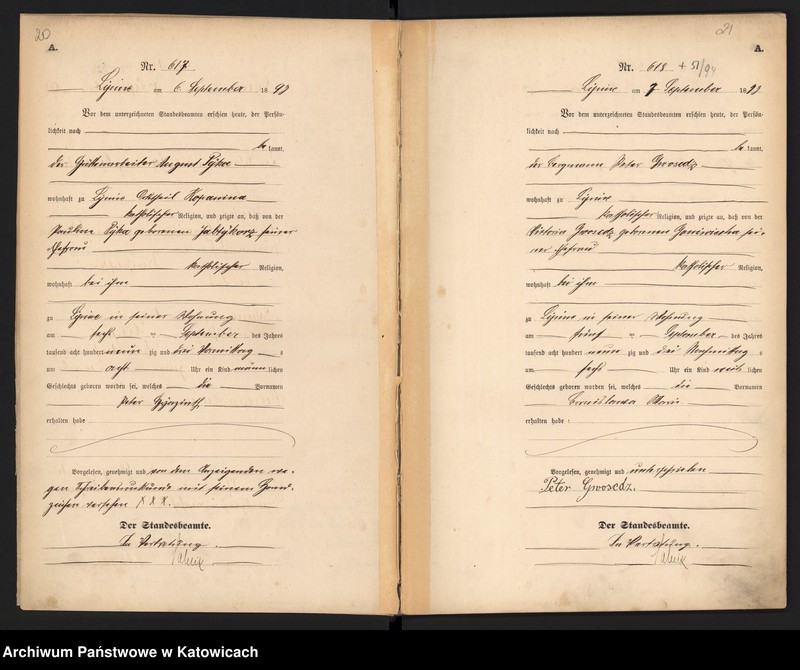 20
A.
Nr. 617
Lipine am 6 September 1893
Vor dem unterzeichneten Standesbeamten erschien heute, der Persön-
lichkeit nach
be kannt,
der Hüttenarbeiter August
wohnhaft zu Lipine Ortstheil Kopanina
katholischer Religion, und zeigte an, daß von der
Pauline geborenen seiner
Ehefrau
katholischer Religion,
wohnhaft bei ihm
zu Lipine in seiner Wohnung
am September des Jahres
tausend acht hundert neun zig und drei Vormittag s
um acht Uhr ein Kind männ lichen
Geschlechts geboren worden sei, welches die Vornamen
Peter Hyazinth
erhalten habe
Vorgelesen, genehmigt und von dem Anzeigenden we-
gen Schreibensunkunde mit seinem Hand-
zeichen versehen XXX.
Der Standesbeamte.
In Vertretung.
21
A.
Nr. 618 + 51/94
Lipine am 7 September 1893
Vor dem unterzeichneten Standesbeamten erschien heute, der Persön-
lichkeit nach
be kannt,
der Bergmann Peter Gwosdz
wohnhaft zu Lipine
katholischer Religion, und zeigte an, daß von der
Viktoria Gwosdz geborenen sei-
ner Ehefrau
katholischer Religion,
wohnhaft bei ihm
zu Lipine in seiner Wohnung
am fünf September des Jahres
tausend acht hundert neun zig und drei Nachmittag s
um sechs Uhr ein Kind weib lichen
Geschlechts geboren worden sei, welches die Vornamen
Bronislawa Marie
erhalten habe
Vorgelesen, genehmigt und unterschrieben
Peter Gwosdz.
Der Standesbeamte.
In Vertretung.
Archiwum Państwowe w Katowicach